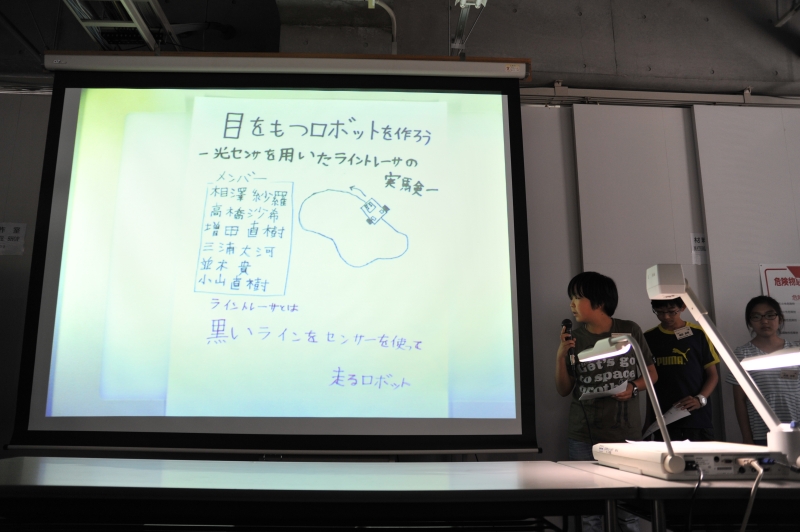 目をもつロボットを作ろう
ー光センサを用いたライントレーサの
実験ー
メンバー
相澤 紗羅
高橋沙希
増田 直樹
三浦大河
並木 貴
小山直樹
ライントレーサとは
黒いラインをセンサーを使って
走るロボット
Let's go
to space
PUMA
危険物